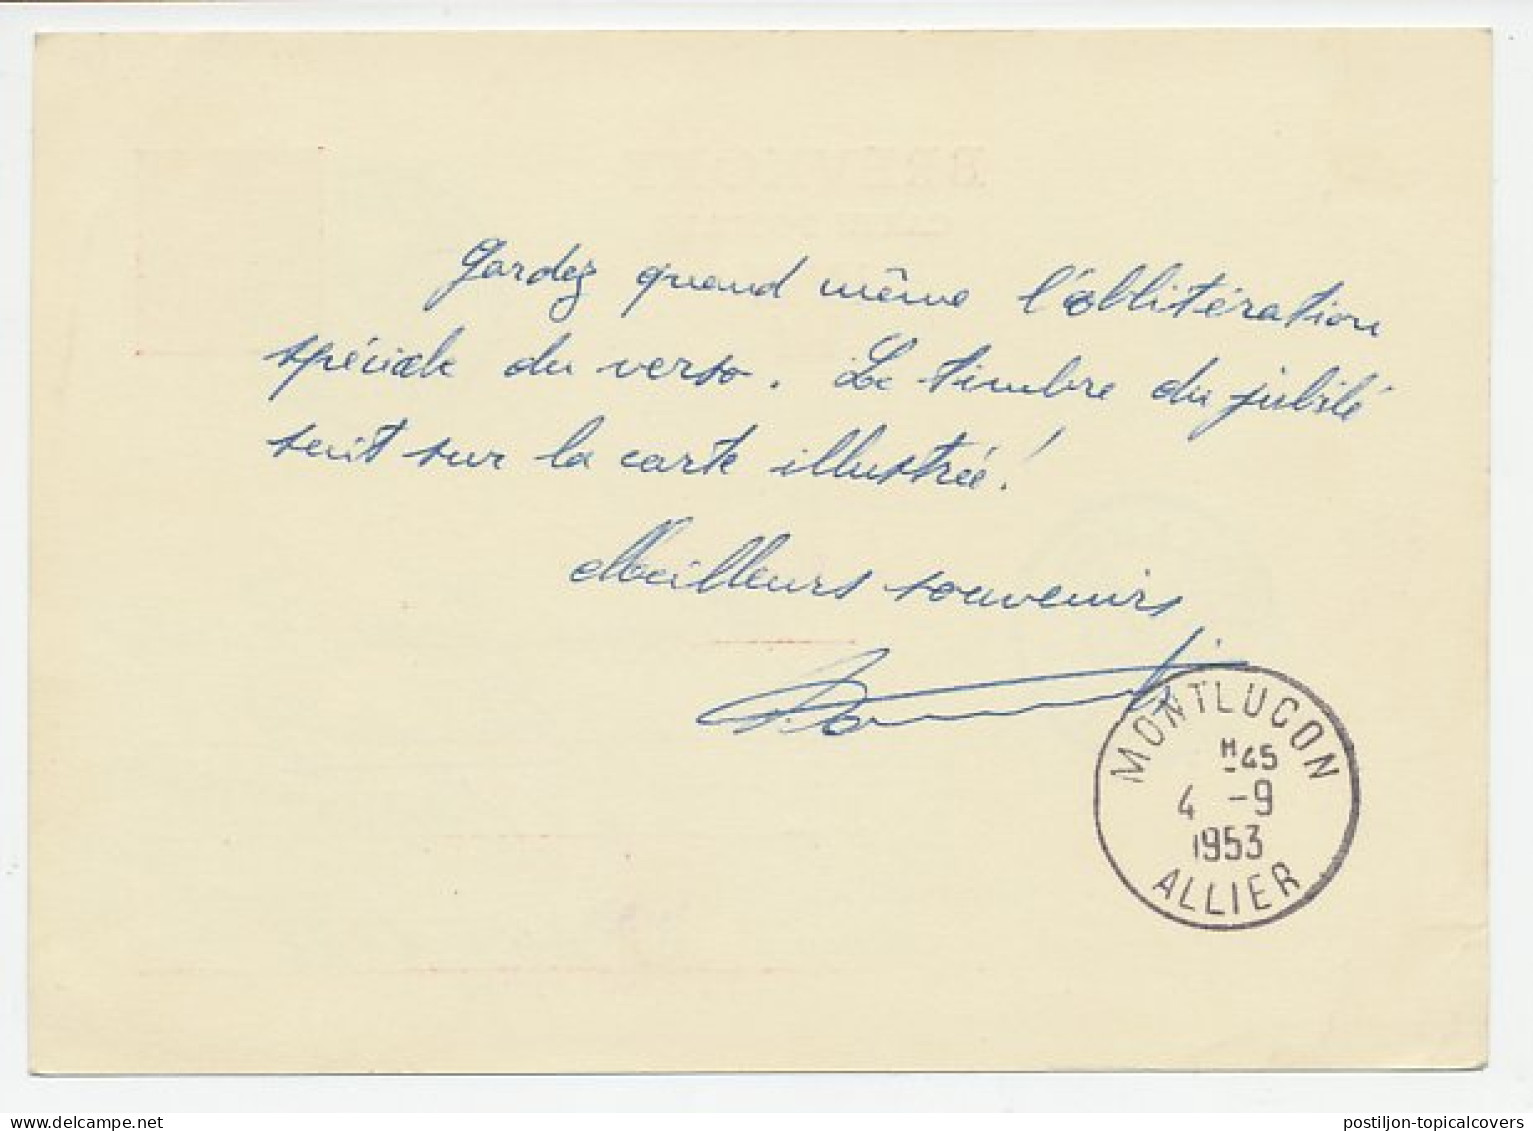 Gardez quand même l'obllitération
spéciale du verso. Le timbre du jubilé
suit sur la carte illustrée!
Meilleurs souvenirs
MONTLUCON
H45
4 -9
1953
ALLIER
postiljon-topicalcovers